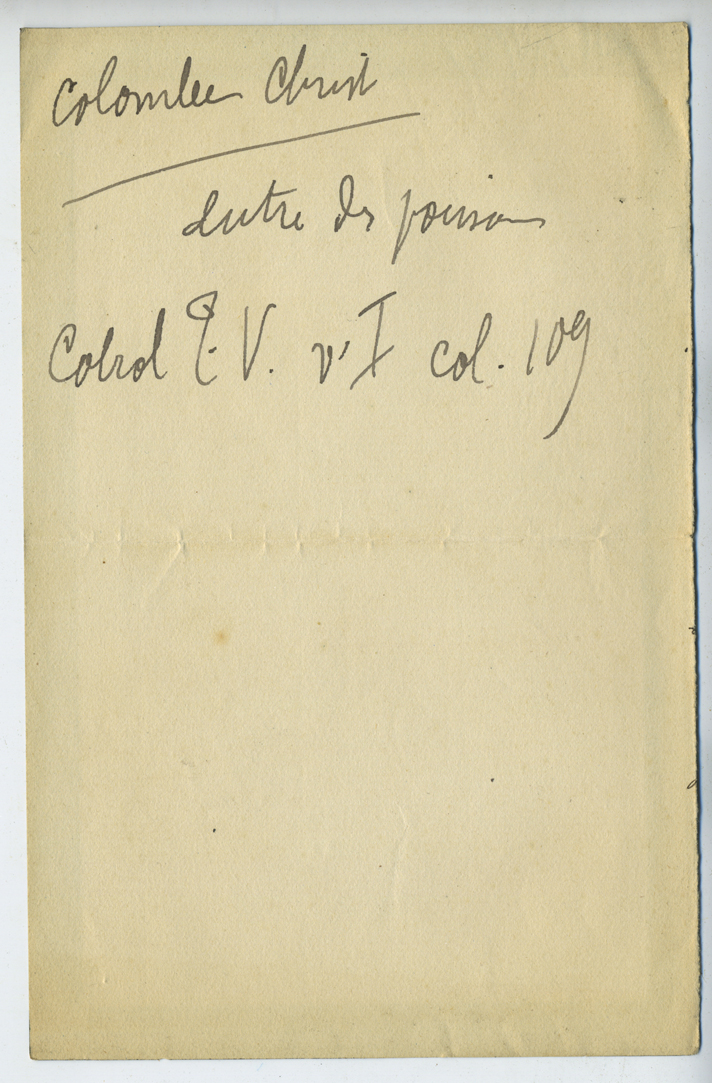 Colombe Christ
entre des poissons
Cabrol T. V. v' I col. 109